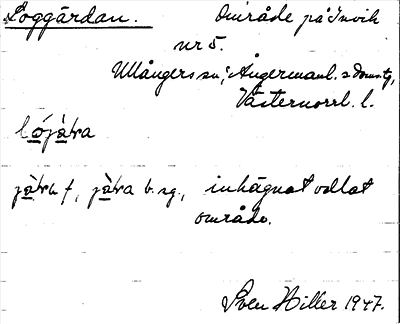 Loggärdan. Område på Invik
nr 5.
Ullångers sn, Ångermanl. s domstg,
Västernorrl. l.
lójàtra
jàtra f, jàtra b. sg., inhägnat odlat
område.
Sven Hiller 1947.